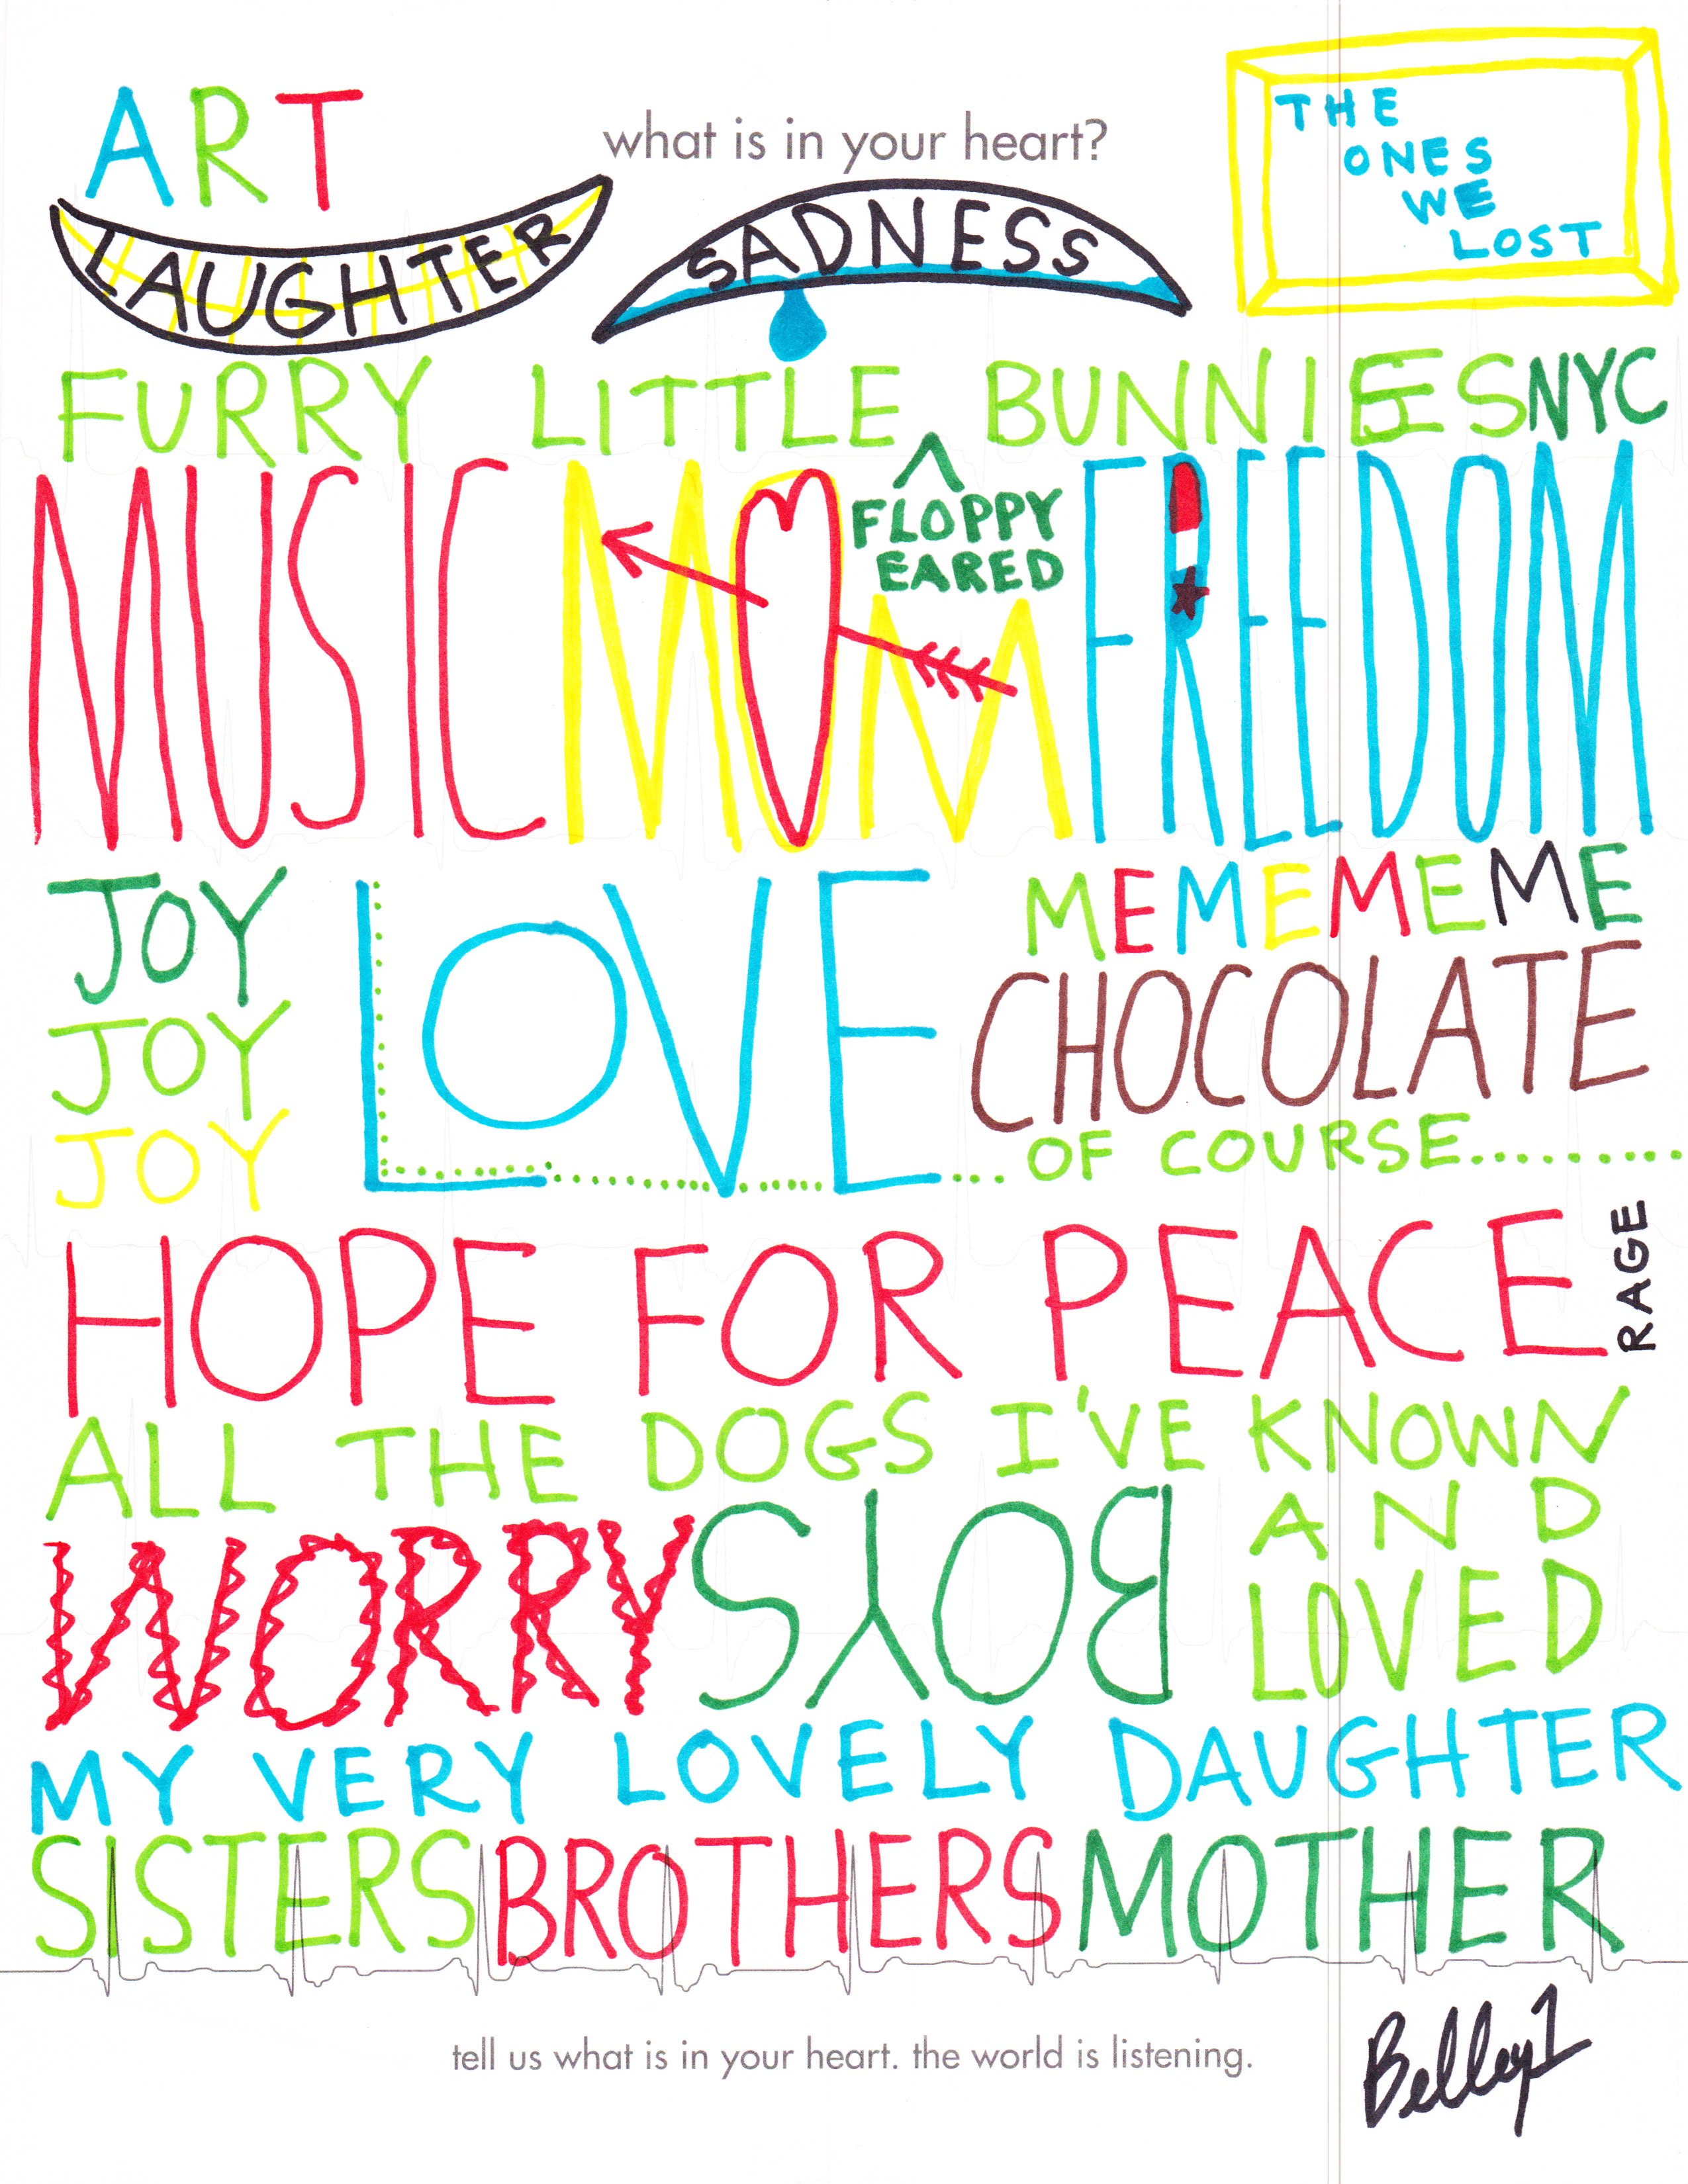 what is in your heart?
ART
LAUGHTER
SADNESS
THE
ONES
WE
LOST
FURRY LITTLE BUNNIES NYC
^
FLOPPY
EARED
MUSIC MOM FREEDOM
JOY
JOY
JOY
LOVE
MEMEMEME
CHOCOLATE
... OF COURSE..........
HOPE FOR PEACE
RAGE
ALL THE DOGS I'VE KNOWN
AND
LOVED
WORRY BOYS
MY VERY LOVELY DAUGHTER
SISTERS BROTHERS MOTHER
tell us what is in your heart. the world is listening.